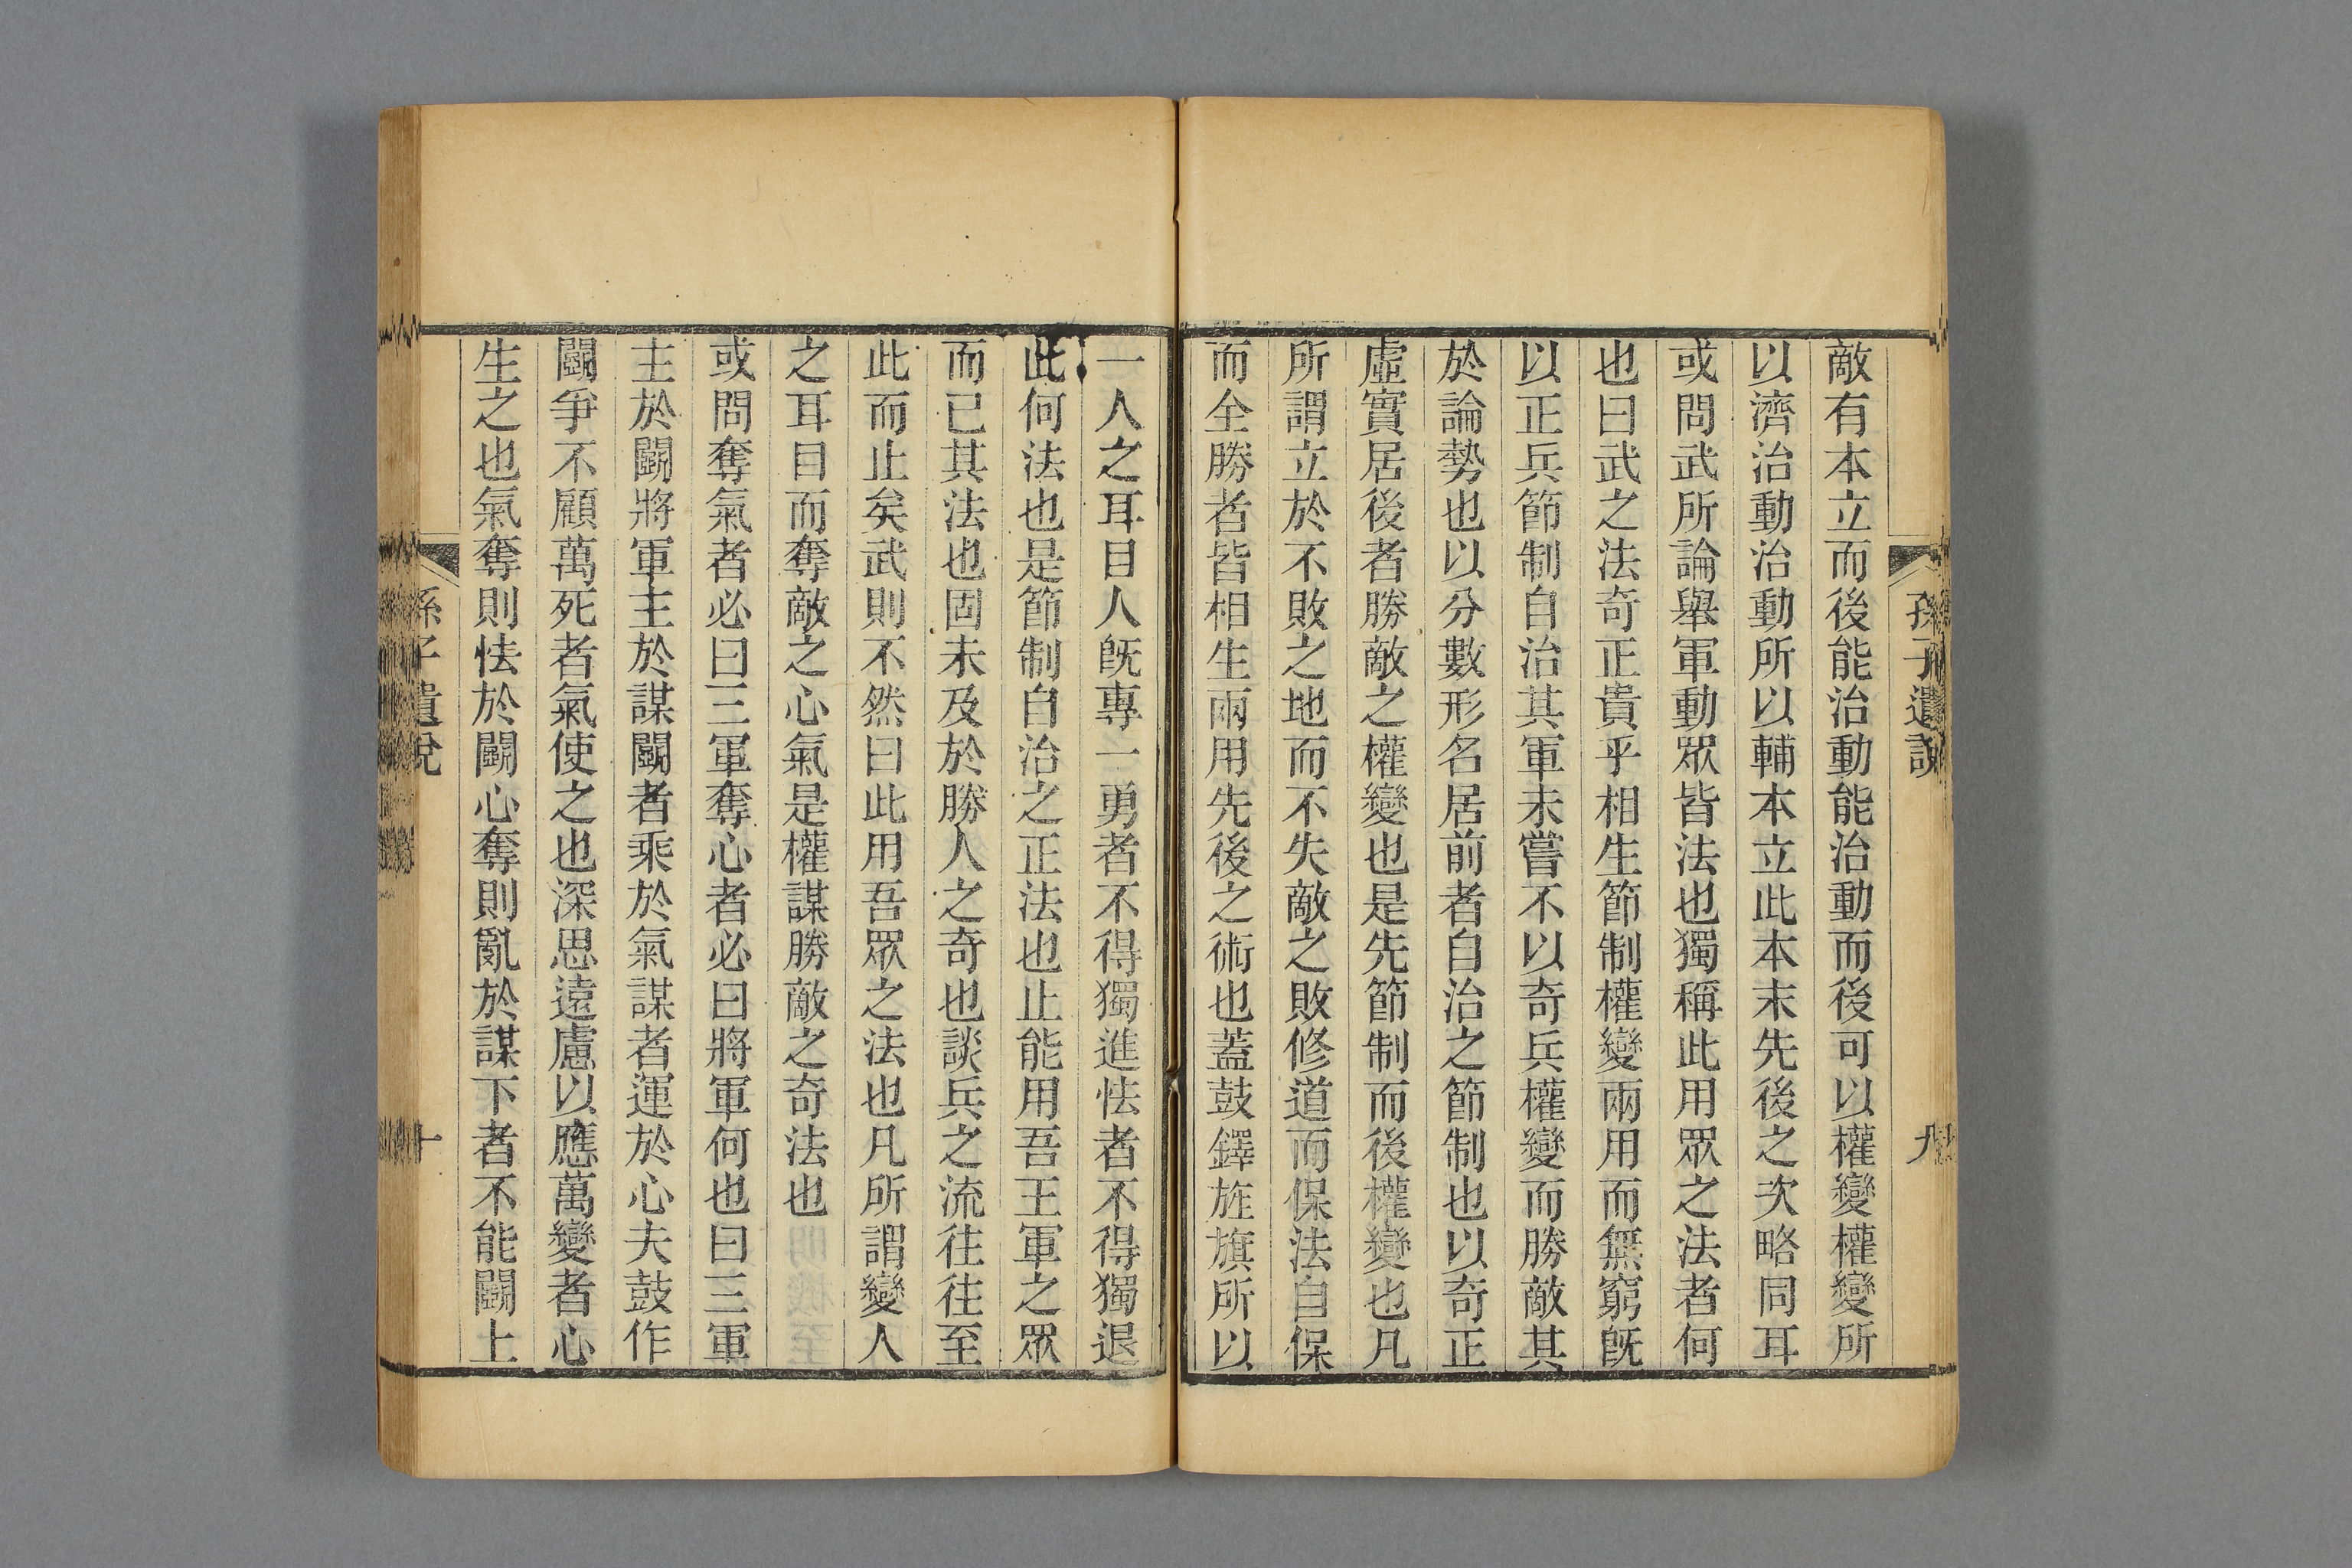 孫子遺說
九
敵有本立而後能治動能治動而後可以權變權變所
以濟治動治動所以輔本立此本末先後之次略同耳
或問武所論舉軍動眾皆法也獨稱此用眾之法者何
也曰武之法奇正貴乎相生節制權變兩用而無窮旣
以正兵節制自治其軍未嘗不以奇兵權變而勝敵其
於論勢也以分數形名居前者自治之節制也以奇正
虛實居後者勝敵之權變也是先節制而後權變也凡
所謂立於不敗之地而不失敵之敗修道而保法自保
而全勝者皆相生兩用先後之術也蓋鼓鐸旌旗所以
一人之耳目人旣專一勇者不得獨進怯者不得獨退
此何法也是節制自治之正法也止能用吾王軍之眾
而已其法也固未及於勝人之奇也談兵之流往往至
此而止矣武則不然曰此用吾眾之法也凡所謂變人
之耳目而奪敵之心氣是權謀勝敵之奇法也
或問奪氣者必曰三軍奪心者必曰將軍何也曰三軍
主於鬬將軍主於謀鬬者乘於氣謀者運於心夫鼓作
鬬爭不顧萬死者氣使之也深思遠慮以應萬變者心
生之也氣奪則怯於鬬心奪則亂於謀下者不能鬬上
孫子遺說
十